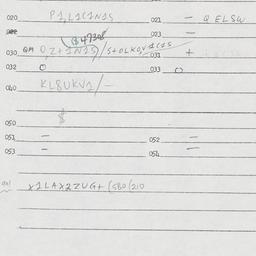 020 P1,L1C1N1S 021 — Q ELSW
023 —
$47308
030 QM OZ+1N2S/S+OLKQV1C1S 031 +
032 O 033 O
040 KL8UKV1/—
050 $
051 — 052 —
053 — 054 —
x1LAX2ZUG+(580(210